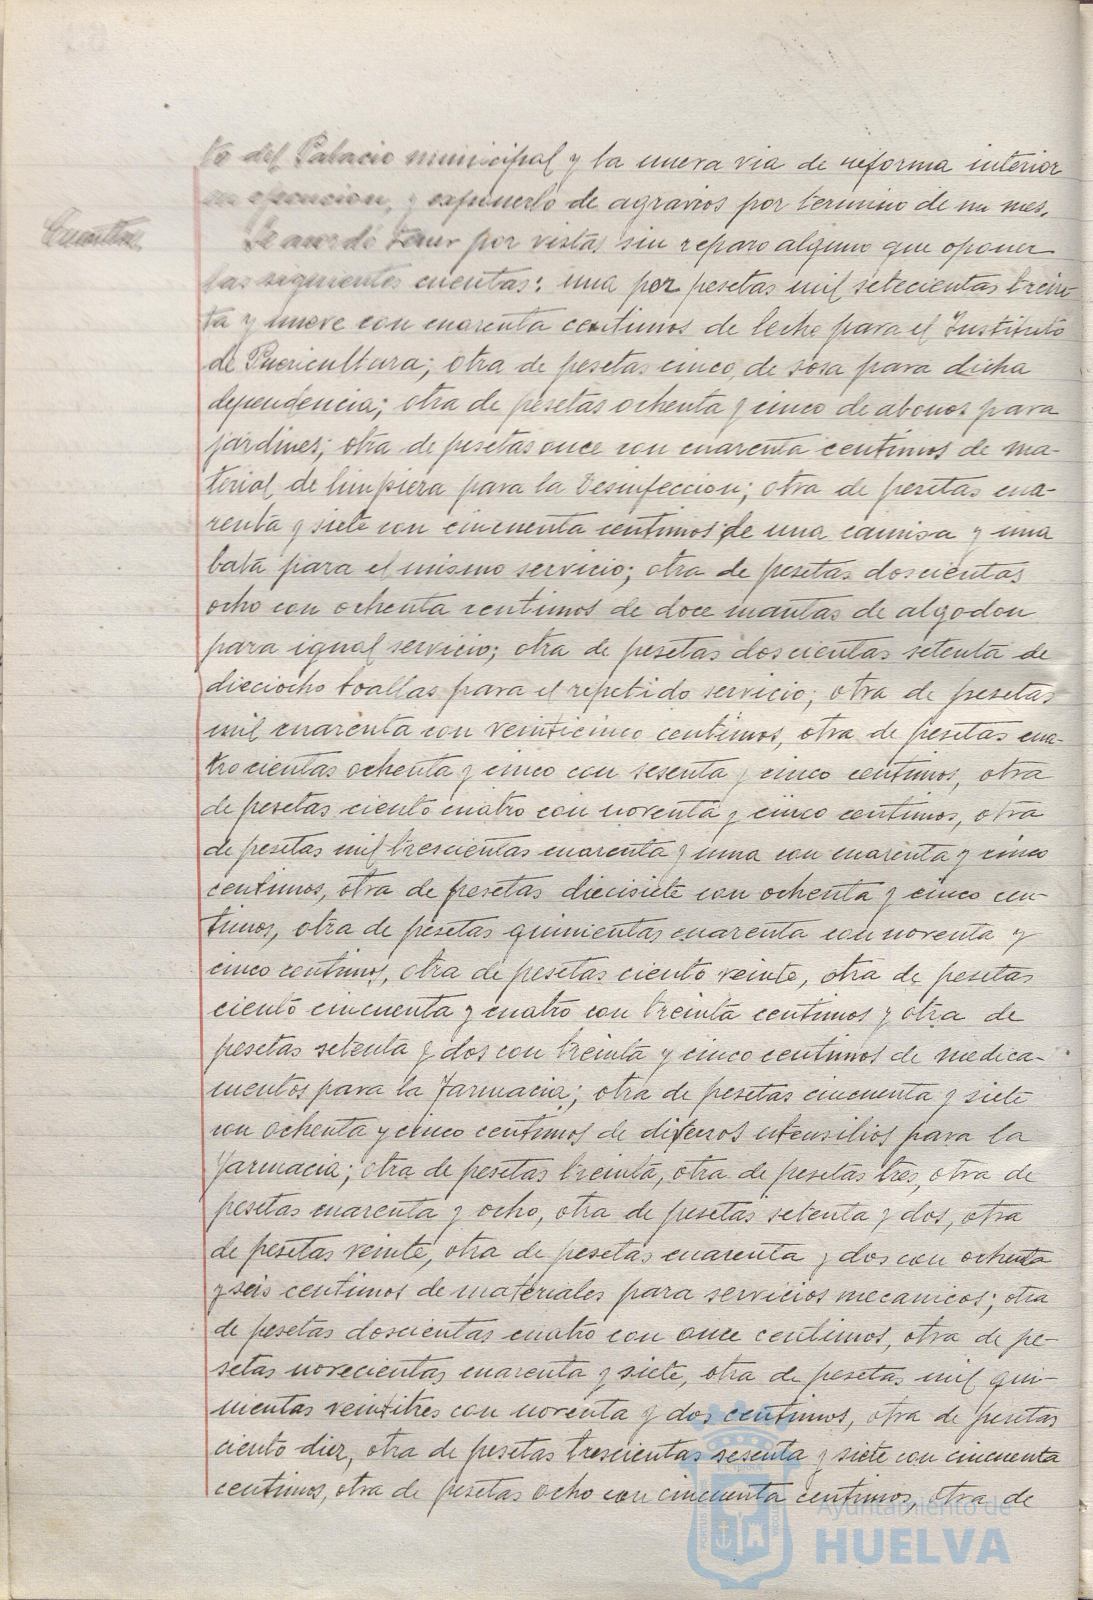 to del Palacio municipal y la nueva via de reforma interior
en ejecucion, y exponerlo de agravios por termino de un mes.
Cuentas.
Se acordó tener por vistas sin reparo alguno que oponer
las siguientes cuentas: una por pesetas mil setecientas trein-
ta y nueve con cuarenta centimos de leche para el Instituto
de Puericultura; otra de pesetas cinco, de sosa para dicha
dependencia; otra de pesetas ochenta y cinco de abonos para
jardines; otra de pesetas once con cuarenta centimos de ma-
terial de limpieza para la Desinfeccion; otra de pesetas cua-
renta y siete con cincuenta centimos de una camisa y una
bata para el mismo servicio; otra de pesetas doscientas
ocho con ochenta centimos de doce mantas de algodon
para igual servicio; otra de pesetas doscientas setenta de
dieciocho toallas para el repetido servicio; otra de pesetas
mil cuarenta con veinticinco centimos, otra de pesetas cua-
trocientas ochenta y cinco con sesenta y cinco centimos, otra
de pesetas ciento cuatro con noventa y cinco centimos, otra
de pesetas mil trescientas cuarenta y una con cuarenta y cinco
centimos, otra de pesetas diecisiete con ochenta y cinco cen-
timos, otra de pesetas quinientas cuarenta con noventa y
cinco centimos, otra de pesetas ciento veinte, otra de pesetas
ciento cincuenta y cuatro con treinta centimos y otra de
pesetas setenta y dos con treinta y cinco centimos de medica-
mentos para la Farmacia; otra de pesetas cincuenta y siete
con ochenta y cinco centimos de diversos utensilios para la
Farmacia; otra de pesetas treinta, otra de pesetas tres, otra de
pesetas cuarenta y ocho, otra de pesetas setenta y dos, otra
de pesetas veinte, otra de pesetas cuarenta y dos con ochenta
y seis centimos de materiales para servicios mecanicos; otra
de pesetas doscientas cuatro con once centimos, otra de pe-
setas novecientas cuarenta y siete, otra de pesetas mil qui-
nientas veintitres con noventa y dos centimos, otra de pesetas
ciento diez, otra de pesetas trescientas sesenta y siete con cincuenta
centimos, otra de pesetas ocho con cincuenta centimos, otra de
Ayuntamiento de
HUELVA